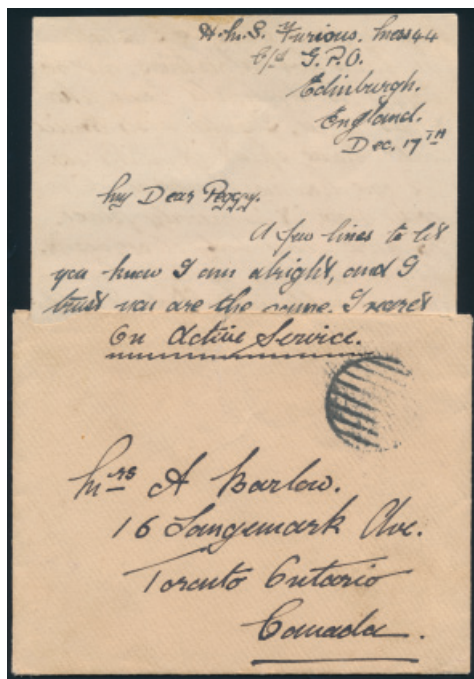 H.M.S. Furious. Mess 44
C/o G.P.O.
Edinburgh.
England.
Dec. 17TH
My Dear Peggy.
A few lines to let
you know I am alright, and I
trust you are the same. I
On Active Service.
Mrs A Barlow.
16 Langemark Ave.
Toronto Ontario
Canada.